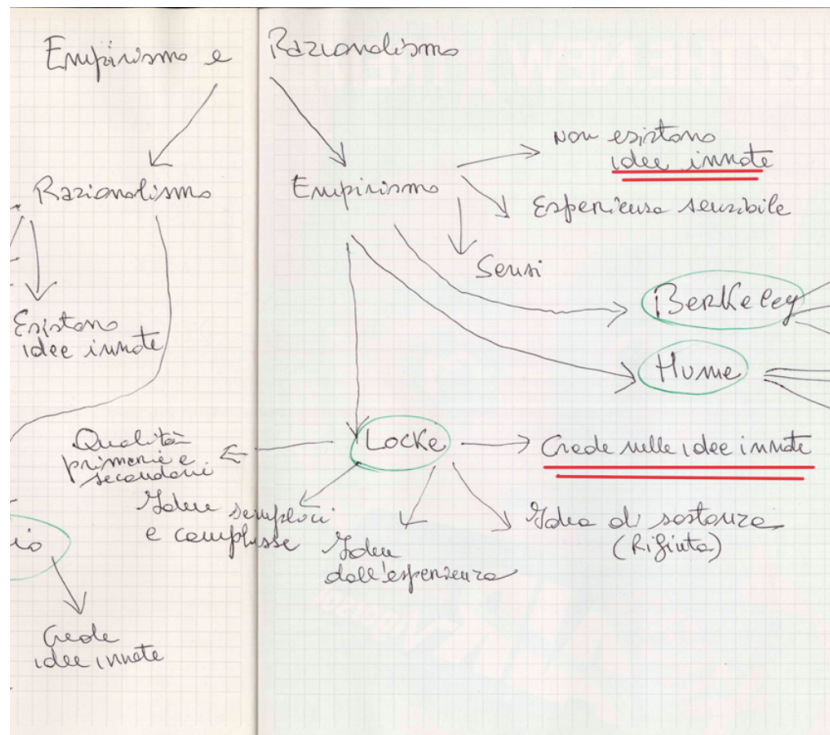 Empirismo e Razionalismo
Razionalismo
Empirismo
non esistono
idee innate
Esperienza sensibile
Sensi
Esistono
idee innate
Berkeley
Hume
Locke
Crede nelle idee innate
Qualità
primarie e
secondarie
Idee semplici
e complesse
Idee
dall'esperienza
Idea di sostanza
(Rifiuta)
io
Crede
idee innate